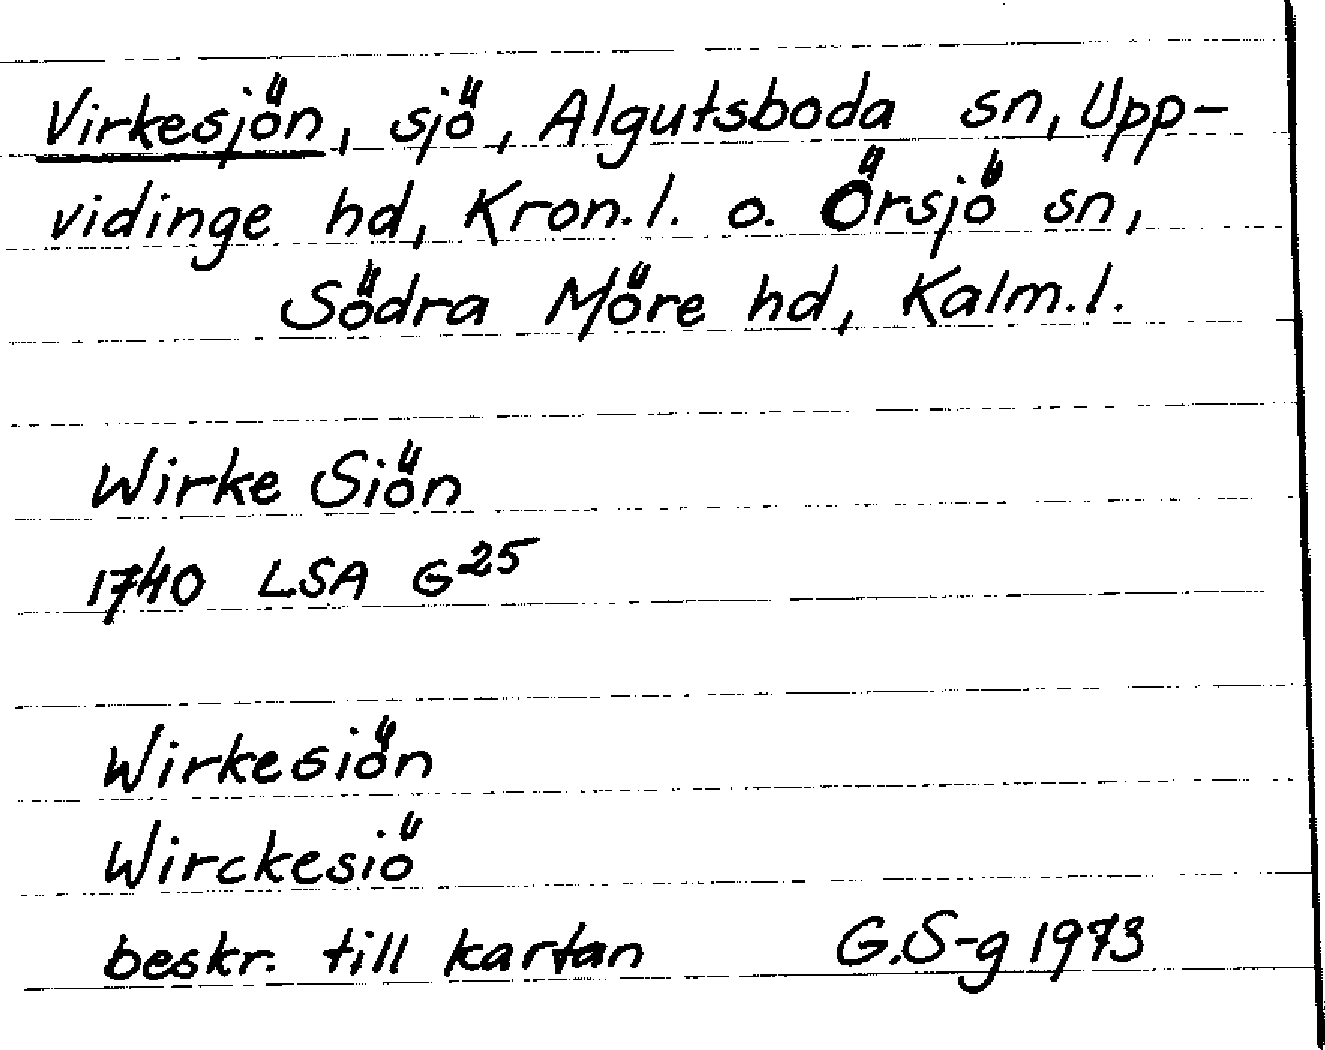 Virkesjön, sjö, Algutsboda sn, Upp-
vidinge hd, Kron.l. o. Örsjö sn,
Södra Möre hd, Kalm.l.
Wirke Siön
1740 LSA G25
Wirkesiön
Wirckesiö
beskr. till kartan G.S-g 1973